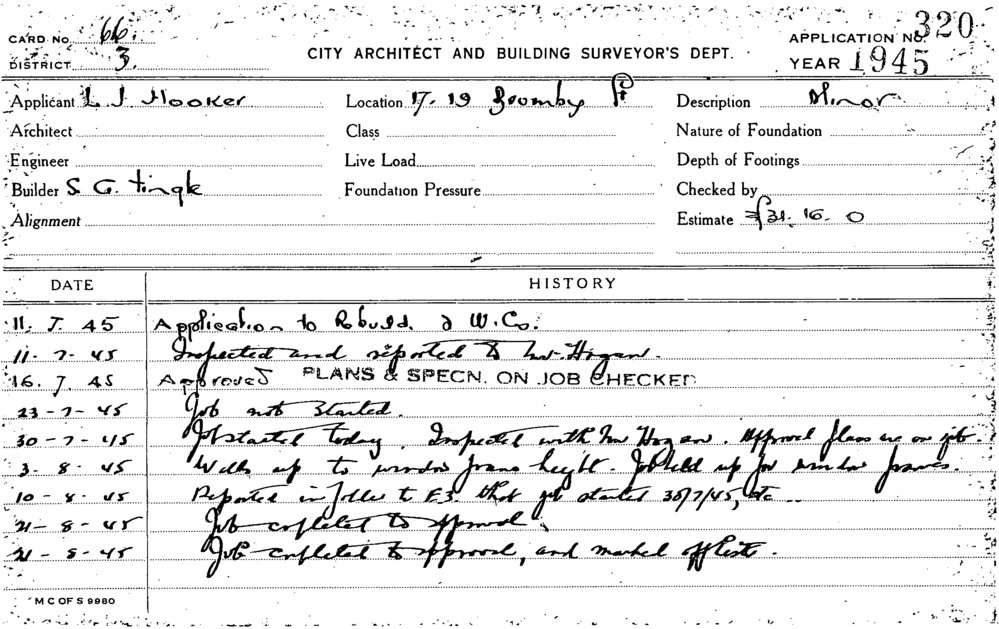 CARD NO. 66. CITY ARCHITECT AND BUILDING SURVEYOR'S DEPT. APPLICATION NO. 320
DISTRICT 3. YEAR 1945
Applicant L J Hooker Location 17-19 Boomby St Description Minor
Architect Class Nature of Foundation
Engineer Live Load Depth of Footings
Builder S. G. Tingle Foundation Pressure Checked by
Alignment Estimate £31. 16. 0
DATE HISTORY
11. 7. 45 Application to Rebuild. 2 W.Cs.
11-7-45 Inspected and reported to Mr Hogan.
16. 7. 45 Approved PLANS & SPECN. ON JOB CHECKED
23-7-45 Job not Started.
30-7-45 Job started today. Inspected with Mr Hogan. Approved plans are on job.
3-8-45 Walls up to window frame height. Job held up for window frames.
10-8-45 Reported in to E3 that job started 30/7/45, etc..
21-8-45 Job completed to approval.
21-8-45 Job completed to approval, and marked off
M C OF S 9980